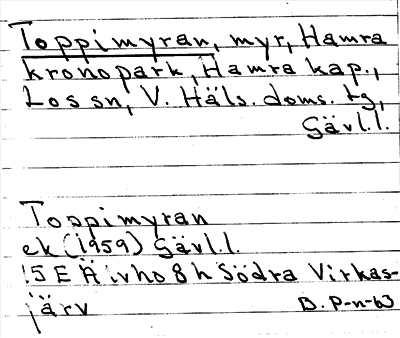 Toppimyran, myr, Hamra
kronopark, Hamra kap.,
Los sn, V. Häls. doms. tg,
Gävl.l.
Toppimyran
ek (1959) Gävl.l.
15E Äivho 8h Södra Virkas-
järv D. P-n-63